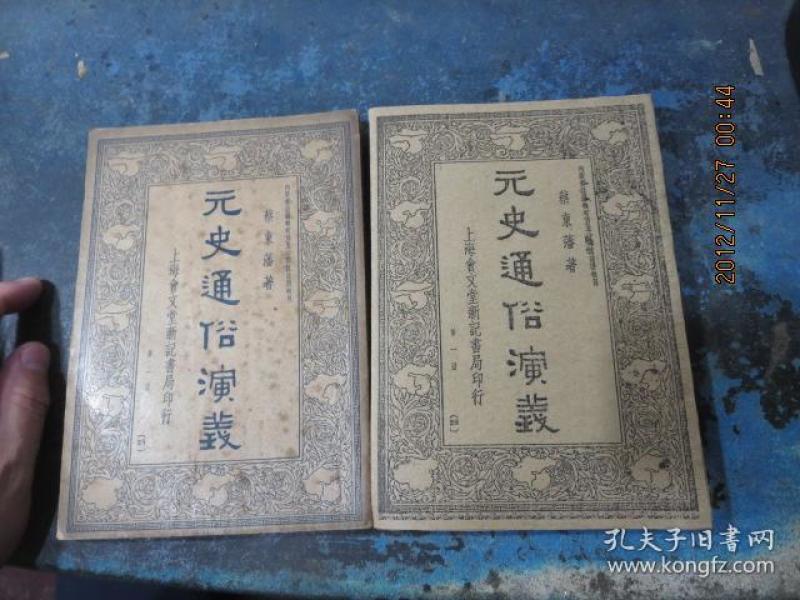 蔡東藩著
元史通俗演義
上海會文堂新記書局印行
第一冊
蔡東藩著
元史通俗演義
上海會文堂新記書局印行
第一冊
2012/11/27 00:44
孔夫子旧书网
www.kongfz.com